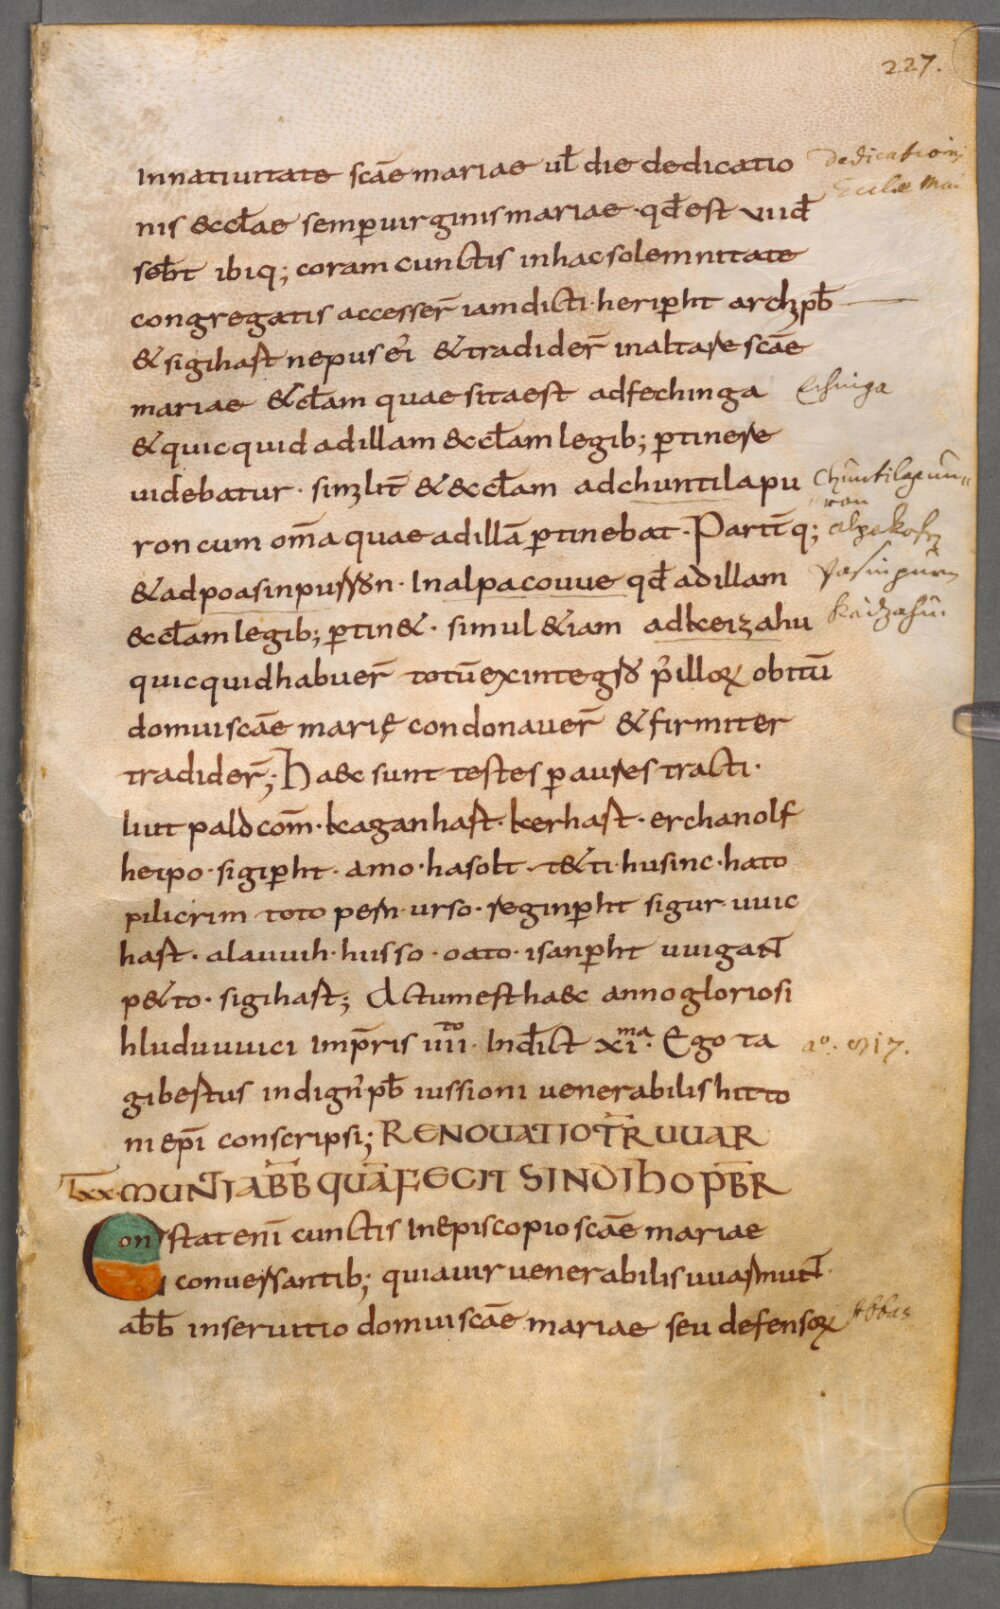 227.
Innatiuitate scāe mariae ul̄ die dedicatio
nis &ccl̄ae semp uirginis mariae · qd̄ est VIId̄
sebt̄ ibiq; coram cunctis inhac solemnitate
congregatis accesser̄ iamdicti · heripht archpb̄
& sigihast nepus ei & tradider̄ in altare scāe
mariae &ccl̄am quae sita est ad fechinga
& quicquid ad illam &ccl̄am legib; ptinere
uidebatur · similit̄ & &ccl̄am ad chuntilapu
ron cum om̄a quae ad illā ptinebat · Partiq;
& ad poasinpurron · In alpacouue qd̄ ad illam
&ccl̄am legib; ptin& · simul &iam ad keizahu
quicquid habuer̄ totū ex integro p illorum obitū
domui scāe marię condonauer̄ & firmiter
tradider̄; Haec sunt testes p aures tracti ·
liutpald com̄ · kaganhast · kerhast · erchanolf
heipo · sigipht · amo · hasolt · t&ti · husinc · hato
pilicrim toto pern · urso · reginpht sigur · uuic
hast · alauuih · husso · oato · isanpht uuigant
p&to · sigihast; Actum est haec anno gloriosi
hluduuuici impris IIII to · Indict XI ma · Ego ta
gibertus indign pb̄ iussioni uenerabilis hitto
ni epī conscripsi; RENOUATIO TR̄ UUAR
LXX MUNTI ABB̄ QUĀ FECIT SINDIHO PB̄R
Constat eni cunctis In episcopio scāe mariae
conuersantib; quia uir uenerabilis uuarmunt
abb̄ in seruitio domui scāe mariae seu defensorum
Dedicationis
Echinga
Chuntilapur
ron
alpakofn
Pasinpurn
Keidzahu
aº. 817.
Abbas